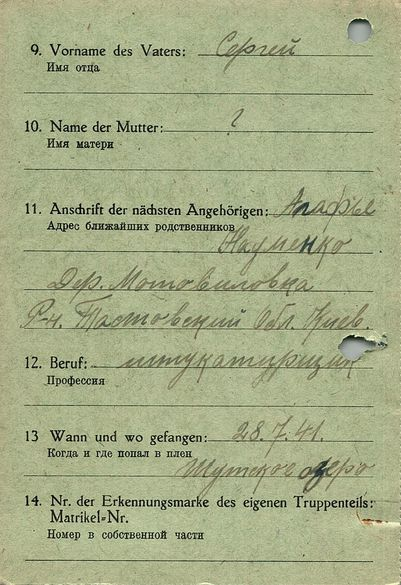 9. Vorname des Vaters: Сергей
Имя отца
10. Name der Mutter: ?
Имя матери
11. Anschrift der nächsten Angehörigen: Агафье
Адрес ближайших родственников
Науменко
Дер. Мотовиловка
Р-н. Пастовский Обл. Киев.
12. Beruf: штукатурщик
Профессия
13 Wann und wo gefangen: 28.7.41.
Когда и где попал в плен
озеро
14. Nr. der Erkennungsmarke des eigenen Truppenteils:
Matrikel=Nr.
Номер в собственной части